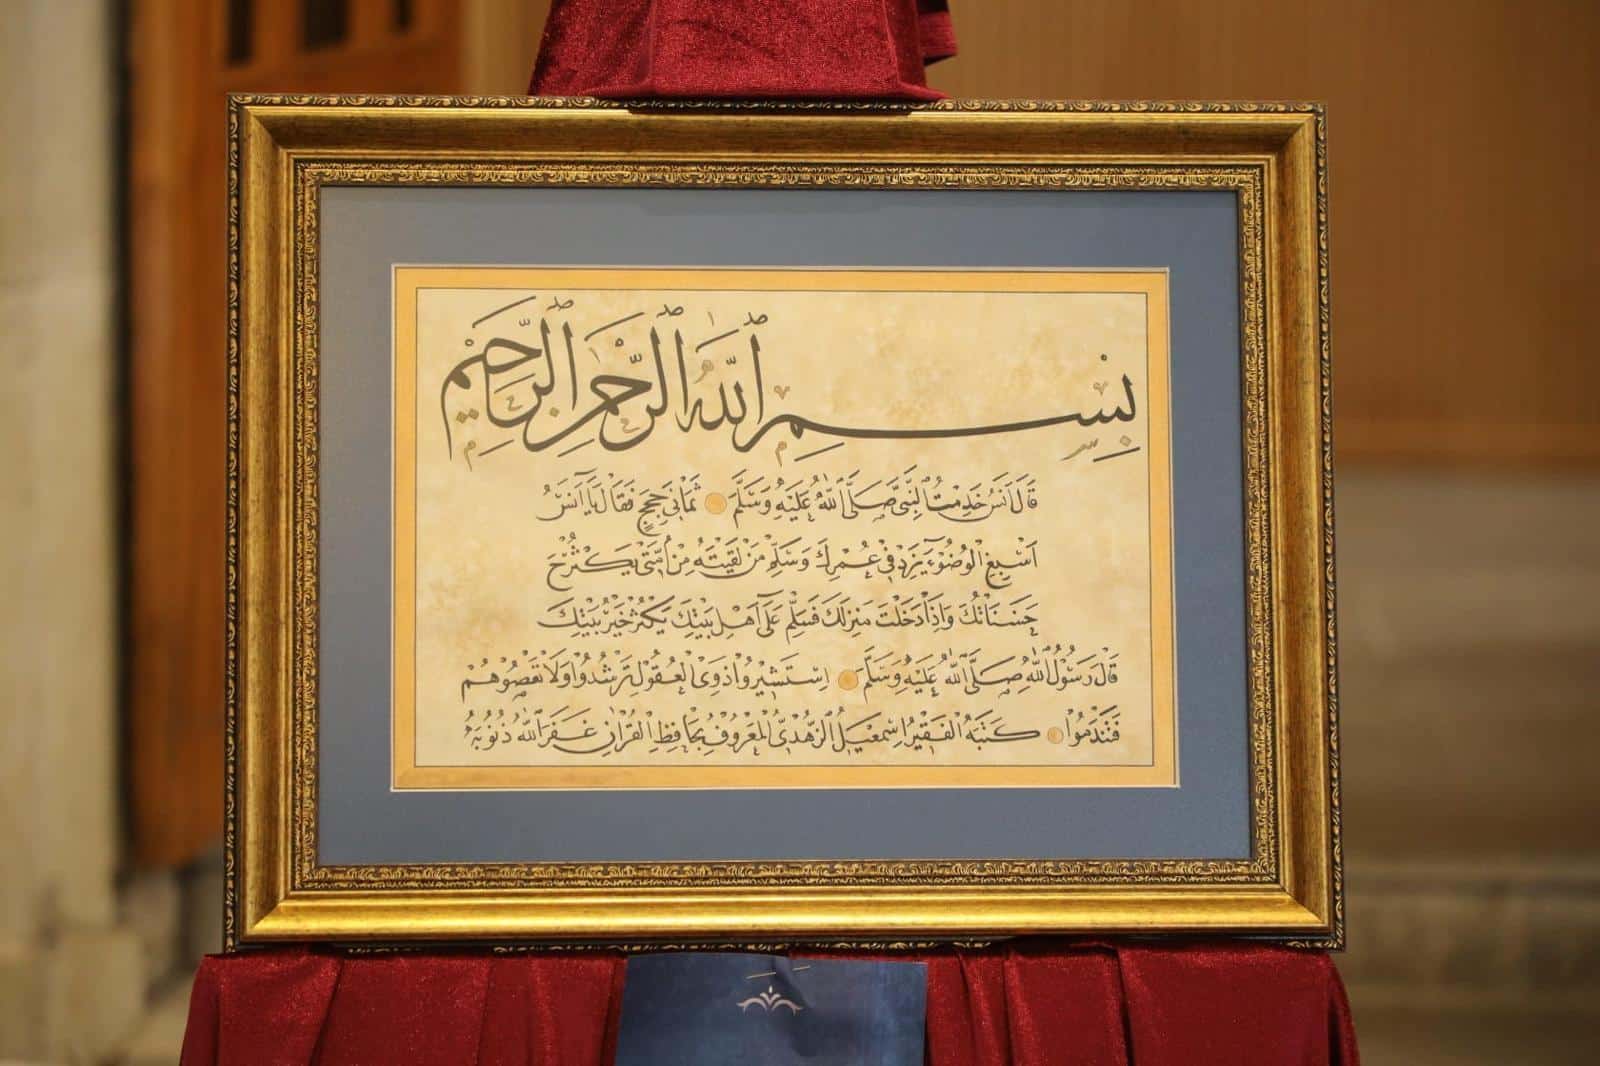 بِسْمِ اللهِ الرَّحْمٰنِ الرَّحِيمِ
قَالَ اَنَسُ خَدِمْتُ النَّبِيَّ صَلَّى اللهُ عَلَيْهِ وَسَلَّمَ ثَمَانِيَ حِجَجٍ فَقَالَ يَا اَنَسُ
اَسْبِغِ الْوُضُوءَ يَزِدْ فِي عُمْرِكَ وَسَلِّمْ مَنْ لَقِيتَهُ مِنْ اُمَّتِي يَكْثُرْ
حَسَنَاتُكَ وَاِذَا دَخَلْتَ مَنْزِلَكَ فَسَلِّمْ عَلَى اَهْلِ بَيْتِكَ يَكْثُرْ خَيْرُ بَيْتِكَ
قَالَ رَسُولُ اللهِ صَلَّى اللهُ عَلَيْهِ وَسَلَّمَ اِسْتَشِيرُوا ذَوِي الْعُقُولِ تَرْشُدُوا وَلَا تَعْصُوهُمْ
فَتَنْدَمُوا كَتَبَهُ الْفَقِيرُ اِسْمٰعِيلُ الزُّهْدِيُّ الْمَعْرُوفُ بِحَافِظِ الْقُرْاٰنِ غَفَرَ اللهُ ذُنُوبَهُ